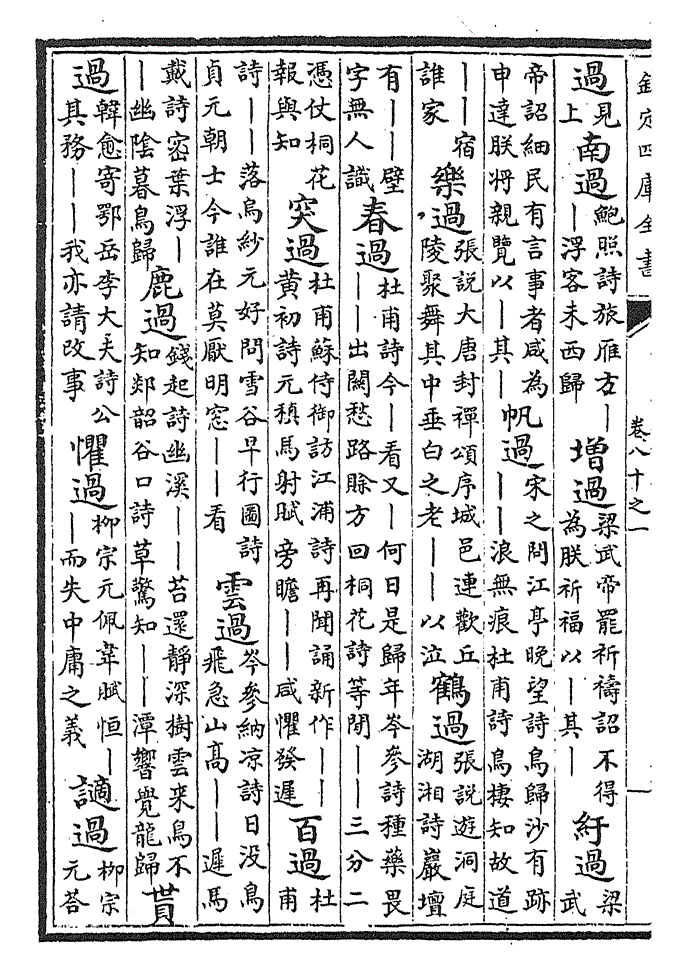 欽定四庫全書 卷八十之一 一
過見上南過鮑照詩旅雁方｜｜浮客未西歸增過梁武帝罷祈禱詔不得為朕祈福以｜其｜紆過梁武
帝詔細民有言事者咸為申達朕將親覽以｜其｜帆過宋之問江亭晚望詩鳥歸沙有跡｜｜浪無痕杜甫詩鳥棲知故道
｜｜宿誰家樂過張說大唐封禪頌序城邑連歡丘陵聚舞其中垂白之老｜｜以泣鶴過張說遊洞庭湖湘詩巖壇
有｜｜壁字無人識春過杜甫詩今｜看又｜何日是歸年岑參詩種藥畏｜｜出關愁路賒方回桐花詩等閒｜｜三分二
憑仗桐花報與知突過杜甫蘇侍御訪江浦詩再聞誦新作｜｜黃初詩元稹馬射賦旁瞻｜｜咸懼發遲百過杜甫
詩｜｜落烏紗元好問雪谷早行圖詩貞元朝士今誰在莫厭明窓｜｜看雲過岑參納凉詩日没鳥飛急山高｜｜遲馬
戴詩密葉浮｜｜幽陰暮鳥歸鹿過錢起詩幽溪｜｜苔還靜深樹雲來鳥不知郯韶谷口詩草驚知｜｜潭響覺龍歸貰
過韓愈寄鄂岳李大夫詩公其務｜｜我亦請改事懼過柳宗元佩韋賦恒｜｜而失中庸之義謫過柳宗元荅